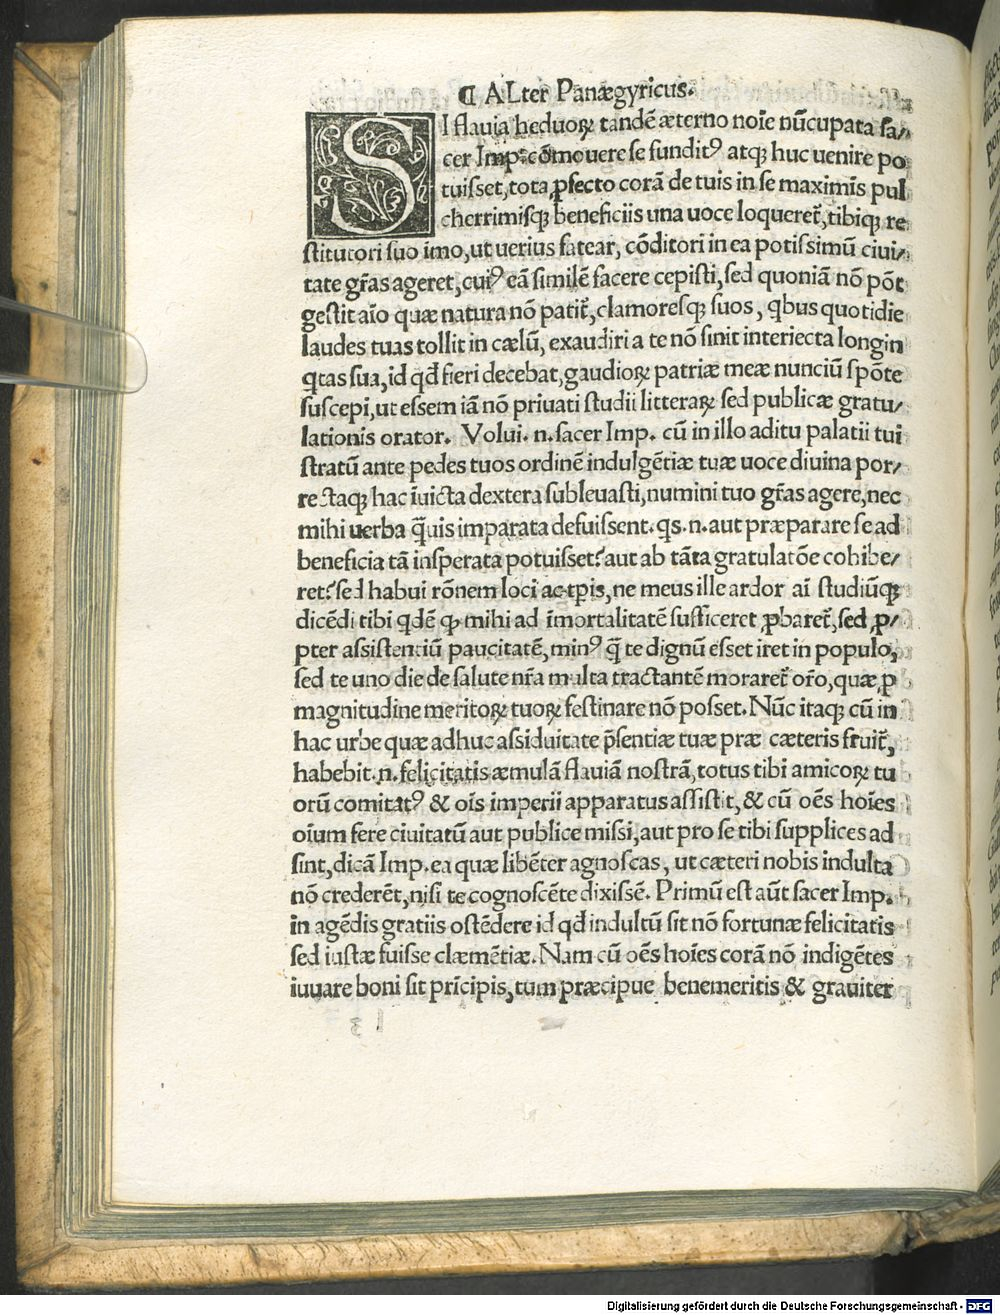 ¶ ALter Panægyricus.
SI flauia heduoꝝ tandē æterno noīe nūcupata sa/
cer Imp. cōmouere se fundit⁹ atqꝫ huc uenire po
tuisset, tota ꝓfecto corā de tuis in se maximīs pul
cherrimisqꝫ beneficiis una uoce loquereť, tibiqꝫ re
stitutori suo imo, ut uerius fatear, cōditori in ea potissimū ciui/
tate gr̄as ageret, cui⁹ eā similē facere cepisti, sed quoniā nō pōt
gestit aīo quæ natura nō patiť, clamoresqꝫ suos, qbus quotidie
laudes tuas tollit in cælū, exaudiri a te nō sinit interiecta longin
q̇tas sua, id qđ fieri decebat, gaudioꝝ patriæ meæ nunciū spōte
suscepi, ut essem iā nō priuati studii litteraꝝ sed publicæ gratu/
lationis orator. Volui. n. sacer Imp. cū in illo aditu palatii tui
stratū ante pedes tuos ordinē indulgētiæ tuæ uoce diuina por/
rectaqꝫ hac īuicta dextera subleuasti, numini tuo gr̄as agere, nec
mihi uerba q̄uis imparata defuissent. qs. n. aut præparare se ad
beneficia tā insperata potuisset? aut ab tāta gratulatōe cohibe/
ret? sed habui rōnem loci ac tp̄is, ne meus ille ardor aī studiūqꝫ
dicēdi tibi qdē ꝙ mihi ad īmortalitatē sufficeret ꝓbareť, sed ꝓ/
pter assistentiū paucitatē, min⁹ q̄ te dignū esset iret in populo,
sed te uno die de salute nr̄a multa tractantē morareť or̄o, quæ ꝓ
magnitudine meritoꝝ tuoꝝ festinare nō posset. Nūc itaqꝫ cū in
hac urbe quæ adhuc assiduitate p̄sentiæ tuæ præ cæteris fruiť,
habebit. n. felicitatis æmulā flauiā nostrā, totus tibi amicoꝝ tu
orū comitat⁹ & oīs imperii apparatus assistit, & cū oēs hoīes
oīum fere ciuitatū aut publice missi, aut pro se tibi supplices ad
sint, dicā Imp. ea quæ libēter agnoscas, ut cæteri nobis indulta
nō crederēt, nisi te cognoscēte dixissē. Primū est aūt sacer Imp.
in agēdis gratiis ostēdere id qđ indultū sit nō fortunæ felicitatis
sed iustæ fuisse clæmētiæ. Nam cū oēs hoīes corā nō indigētes
iuuare boni sit prīcipis, tum præcipue benemeritis & grauiter
Digitalisierung gefördert durch die Deutsche Forschungsgemeinschaft - DFG